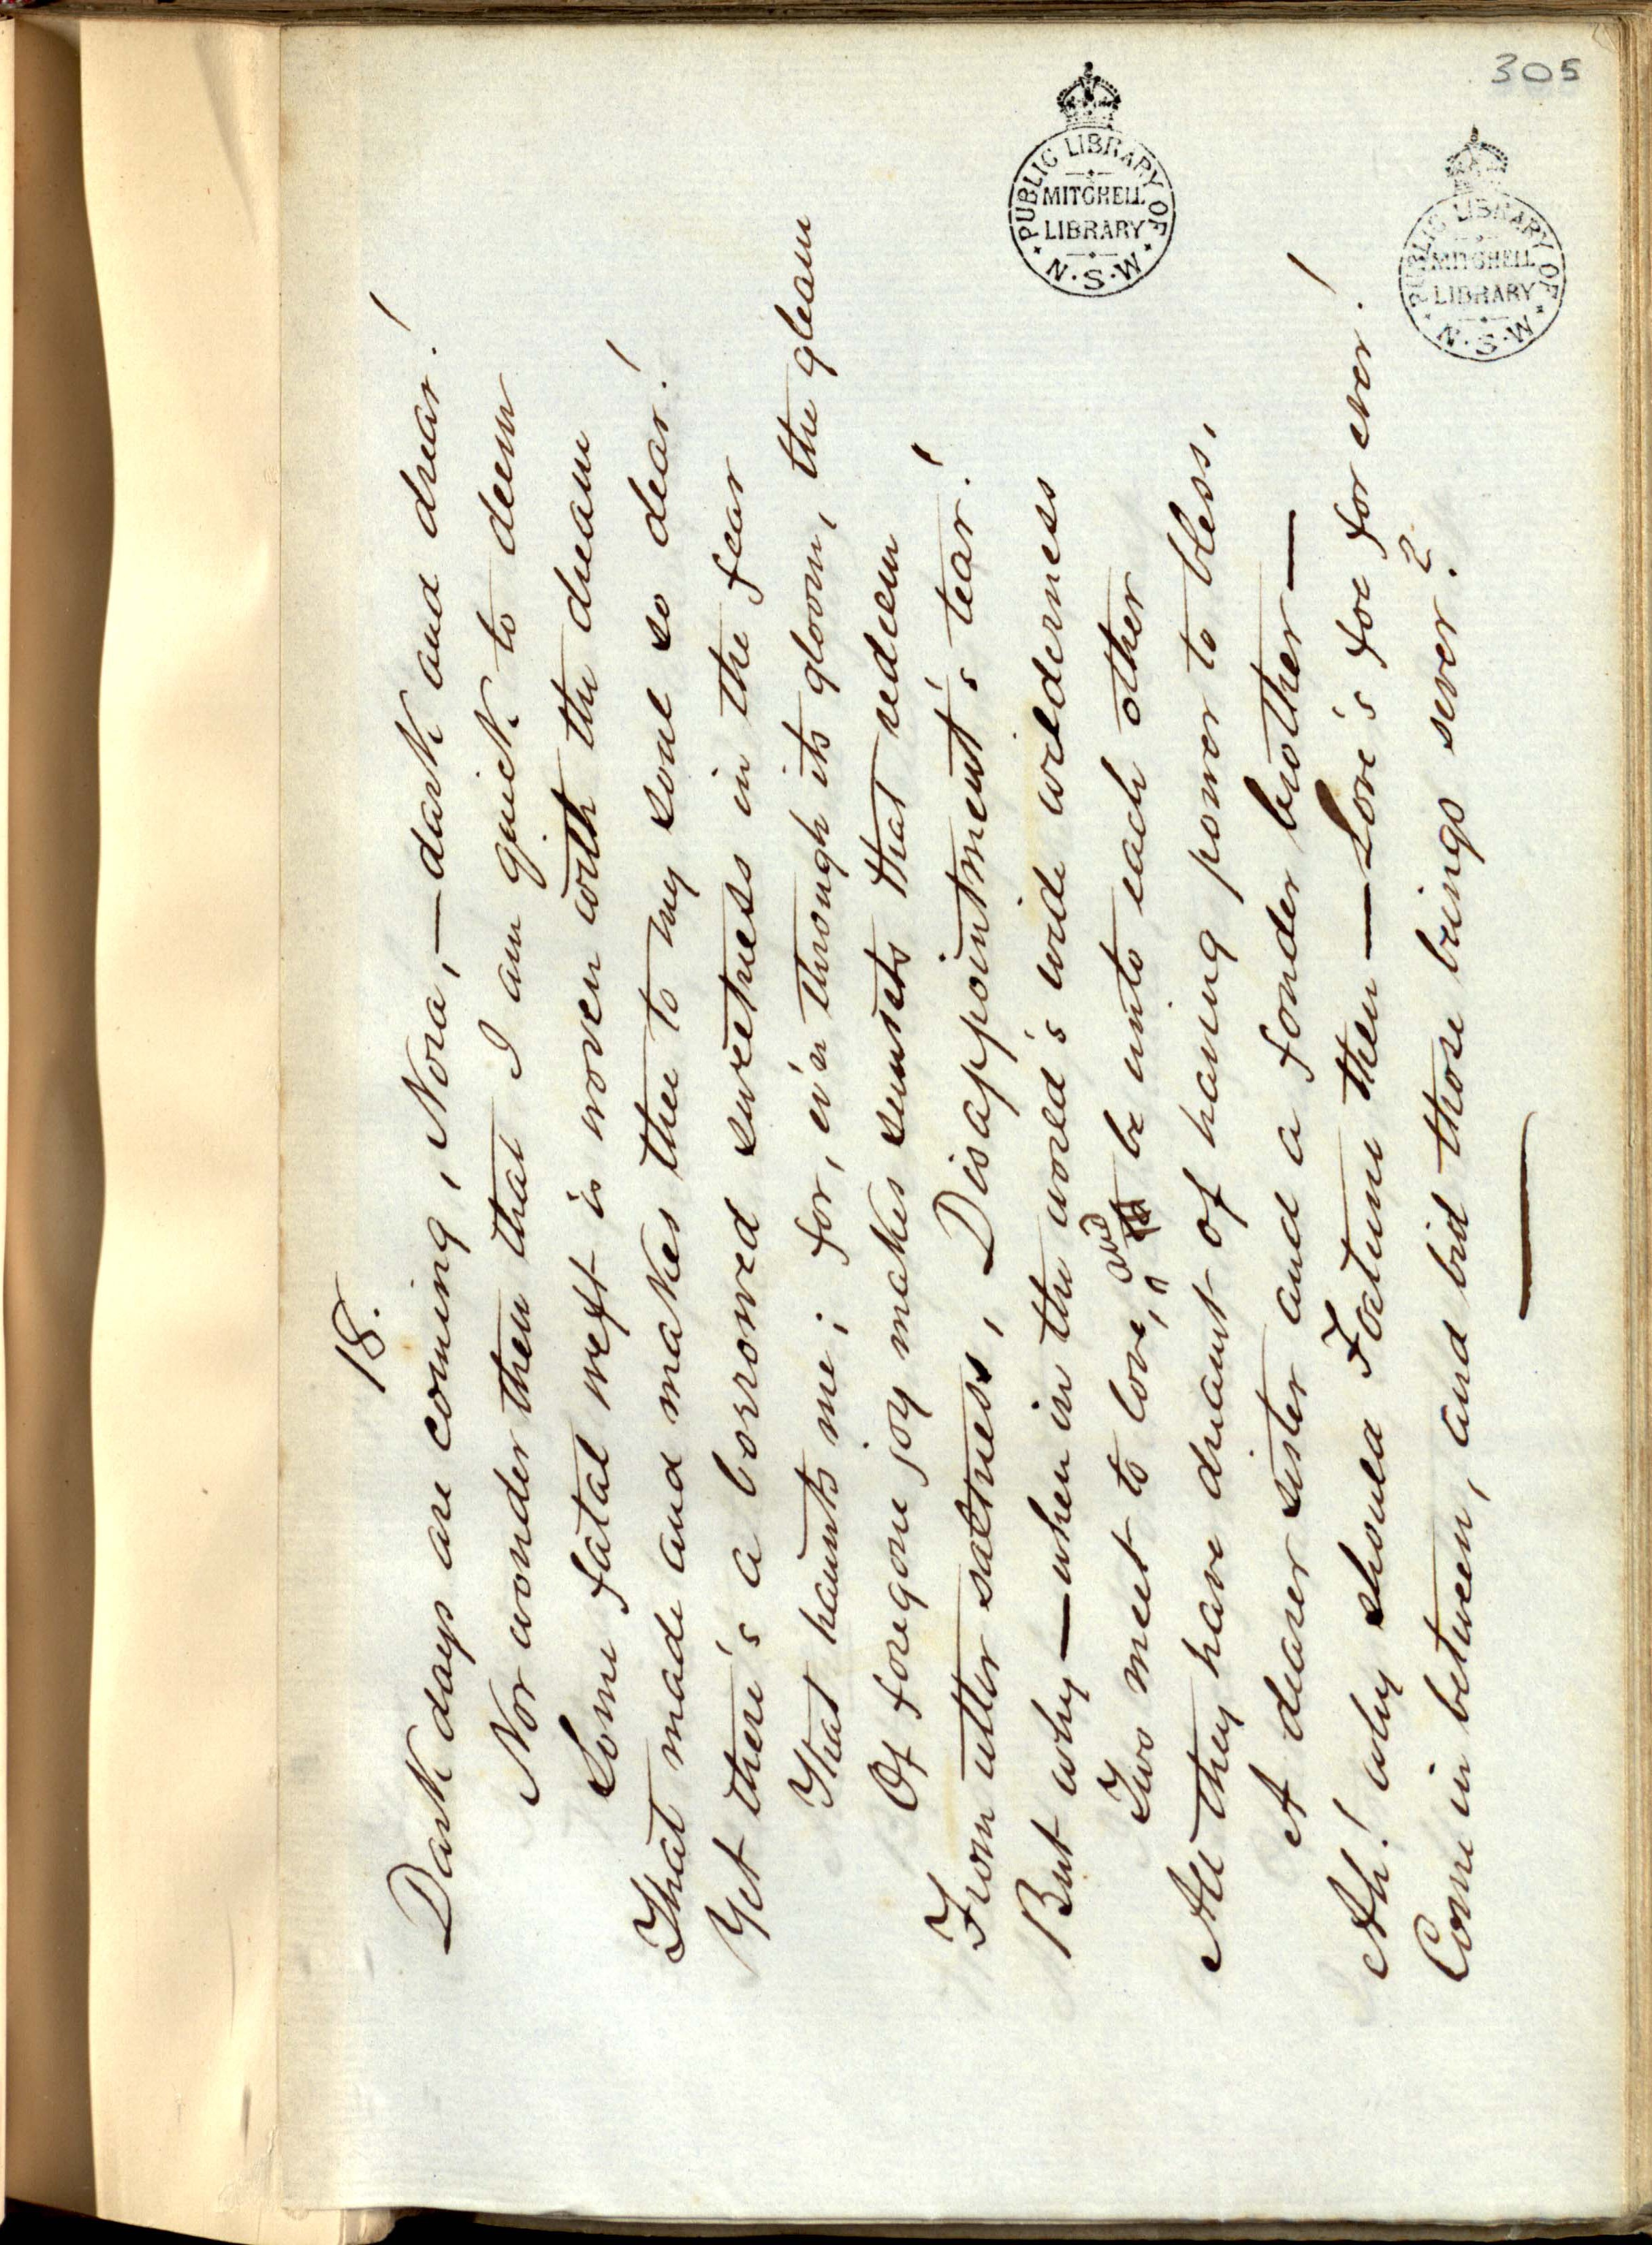 305
18.
Dark days are coming, Nora,—dark and drear!
Nor wonder then that I am quick to deem
Some fatal weft is woven with the dream
That made and makes thee to my soul so dear!
Yet there's a borrowed sweetness in the fear
That haunts me; for, ev'n through its gloom, the gleam
Of foregone joy makes sunsets that redeem
From utter saltness, Disappointment's tear!
But why—when in the world's wide wilderness
Two meet to love, and be unto each other
All they have dreamt of having power to bless,
A dearer sister and a fonder brother—
Ah! why should Fortune then—Love's foe for ever!
Come in between, and bid those beings sever?
PUBLIC LIBRARY OF N.S.W.
MITCHELL
LIBRARY
PUBLIC LIBRARY OF N.S.W.
MITCHELL
LIBRARY